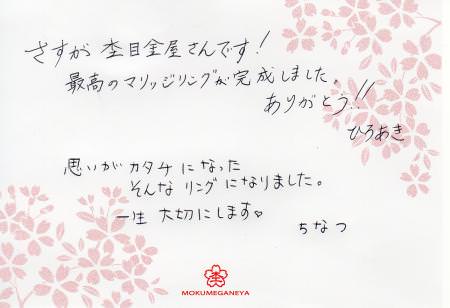 さすが 杢目金屋さんです!
最高のマリッジリングが完成しました。
ありがとう!!
ひろあき
思いがカタチになった
そんなリングになりました。
一生 大切にします♡
ちなつ
MOKUMEGANEYA